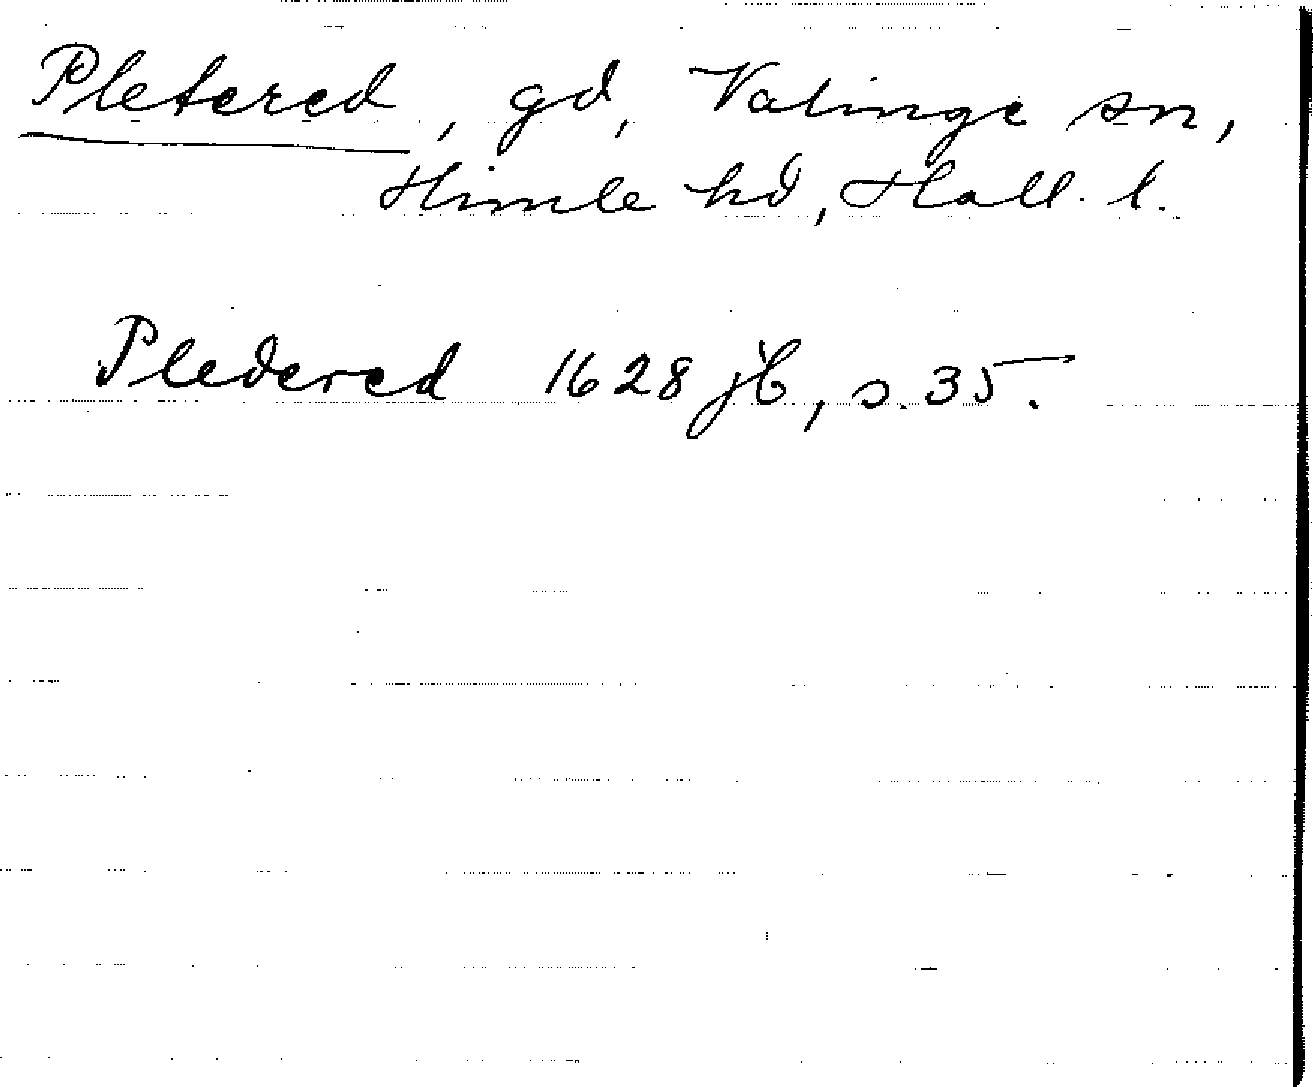 Pletered, gd, Valinge sn,
Himle hd, Hall. l.
Pledered 1628 jb, s. 35.